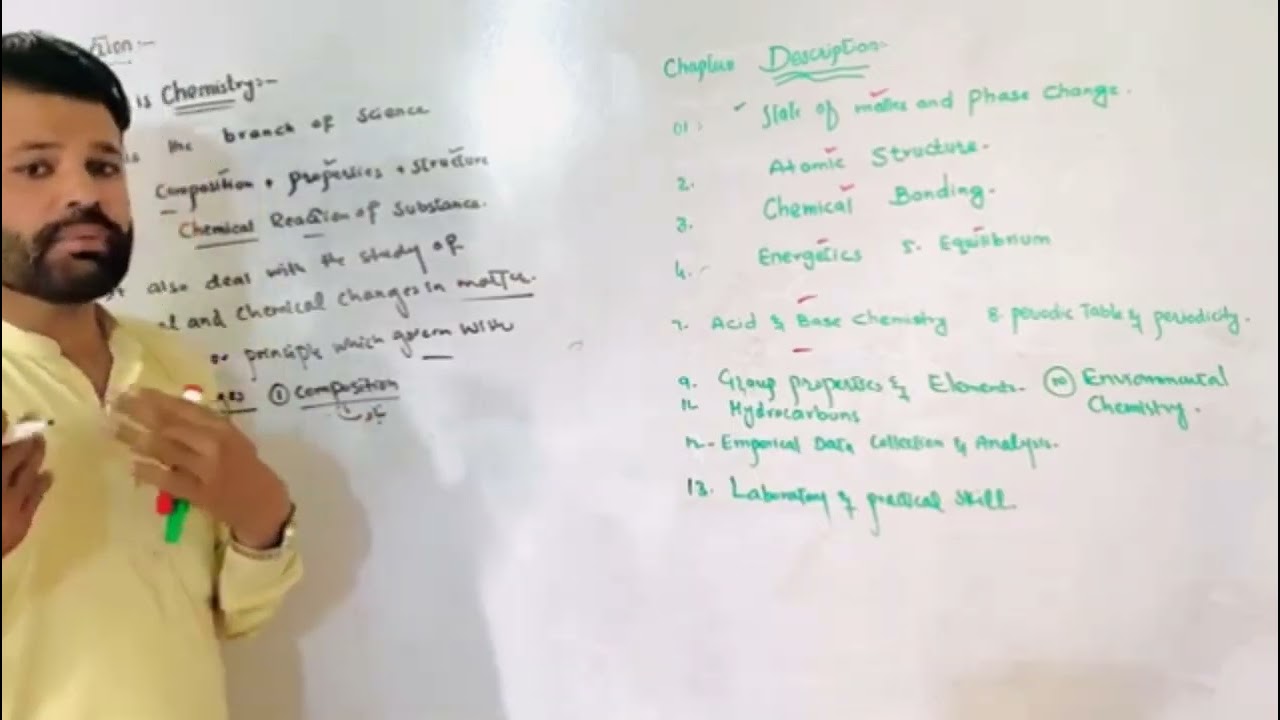 is Chemistry:-
the branch of science
Composition, properties, structure
Chemical Reaction of Substance.
also deal with the study of
and chemical changes in matter.
or principle which govern with
① Composition
Chapter Description:-
01: State of matter and Phase Change.
2. Atomic Structure.
3. Chemical Bonding.
4. Energetics 5. Equilibrium
7. Acid & Base Chemistry 8. periodic Table & periodicity.
9. Group properties & Elements. ⑩ Environmental Chemistry.
11. Hydrocarbons
12. Emperical Data Collection & Analysis.
13. Laboratory & practical skill.